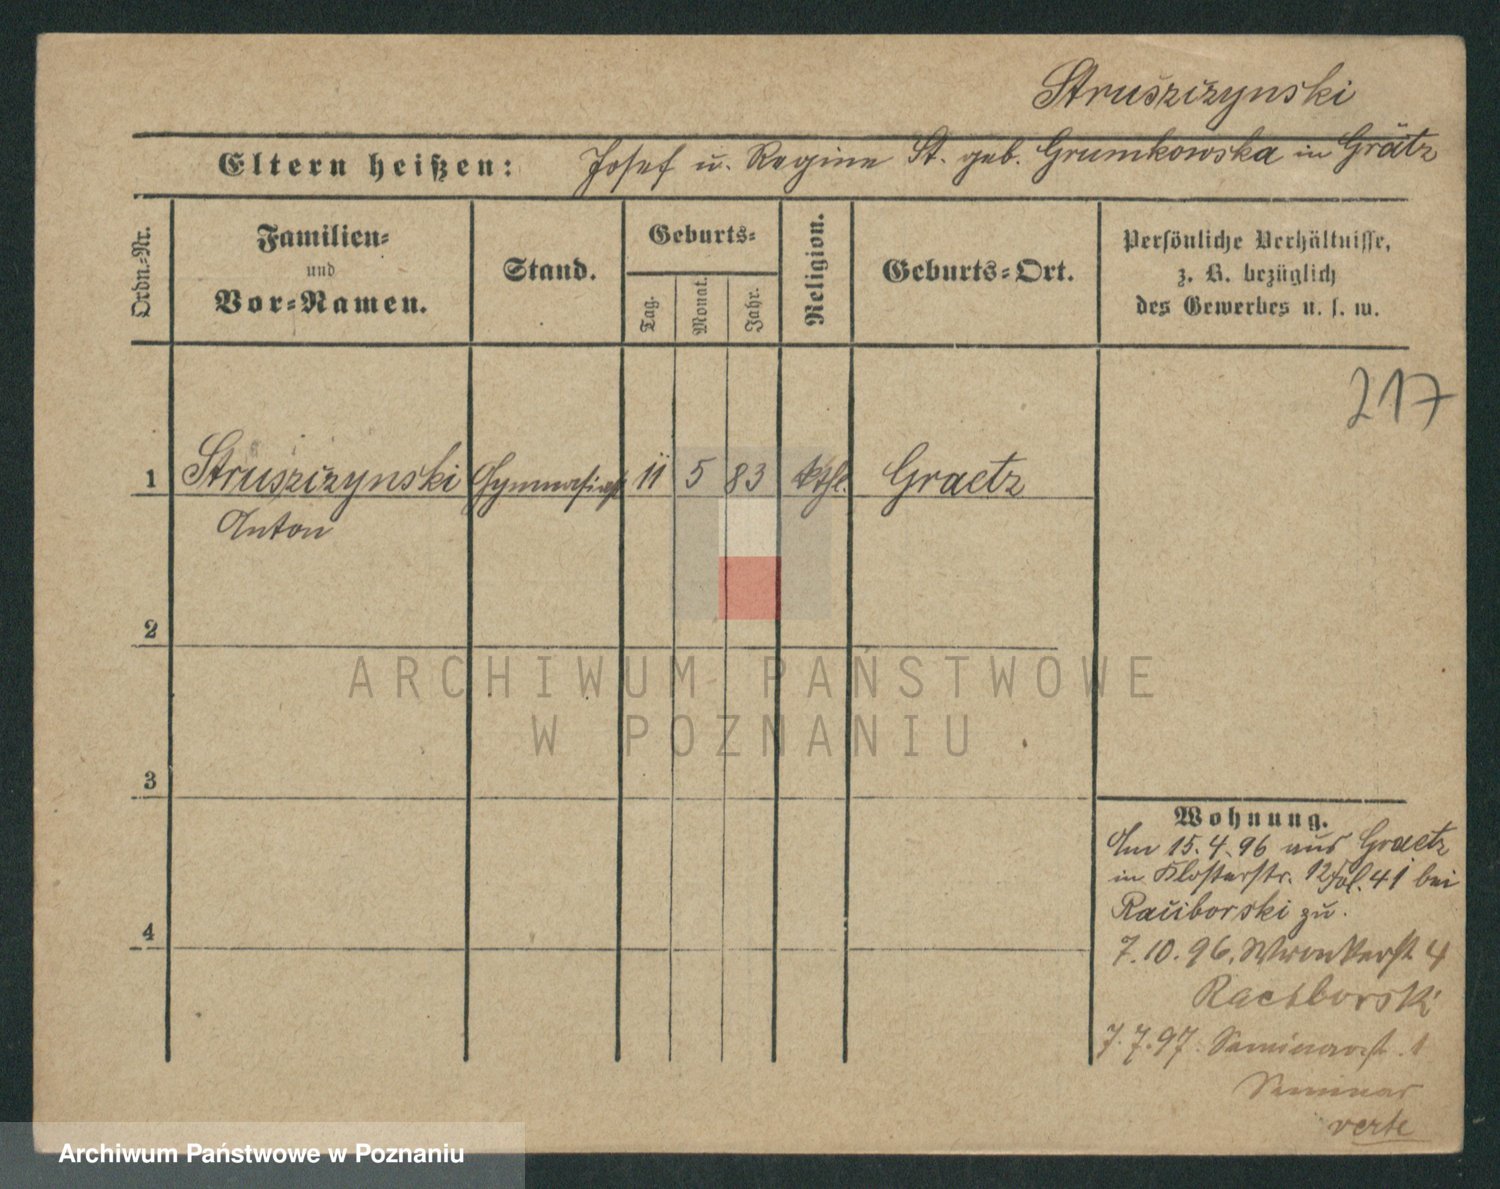 Struszizynski
Eltern heißen: Josef u. Regine St. geb. Grumkowska in Grätz
Ordn.-Nr.
Familien-
und
Vor-Namen.
Stand.
Geburts-
Tag.
Monat.
Jahr.
Religion.
Geburts-Ort.
Persönliche Verhältnisse,
z. B. bezüglich
des Gewerbes u. s. w.
217
1 Struszizynski Gymnasiast 11 5 83 kthl. Graetz
Anton
2
ARCHIWUM PAŃSTWOWE
W POZNANIU
3
Wohnung.
Am 15.4.96 aus Graetz
in Klosterstr. 12 41 bei
Raciborski zu.
4
7.10.96. Wronkerstr 4
Raciborski
7.7.97. Seminarstr. 1
Seminar
verte
Archiwum Państwowe w Poznaniu